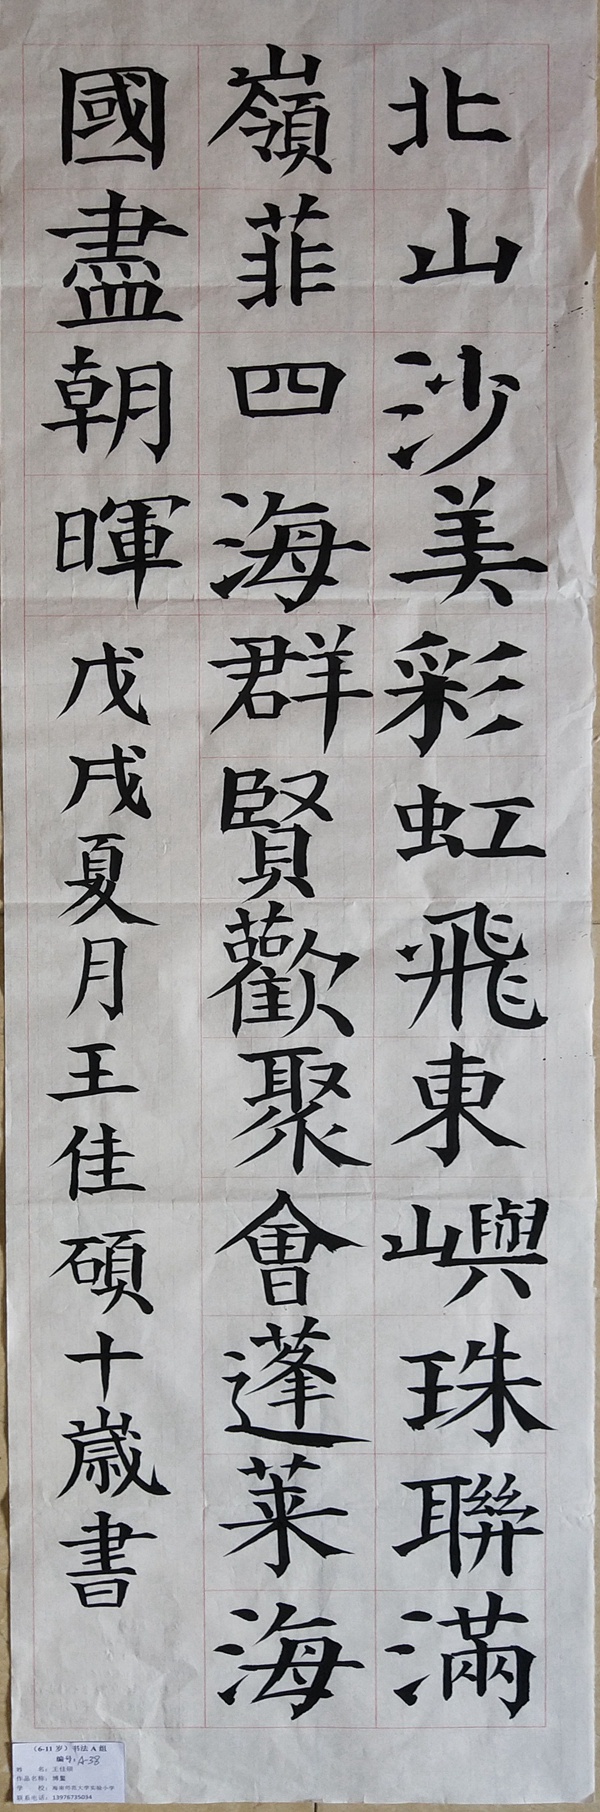 北山沙美彩虹飛東嶼珠聯滿
嶺菲四海群賢歡聚會蓬莱海
國盡朝暉 戊戌夏月王佳碩十歲書
（6-11岁）书法A组
编号：A-38
姓 名：王佳硕
作品名称：博鳌
学 校：海南师范大学实验小学
联系电话：13976735034